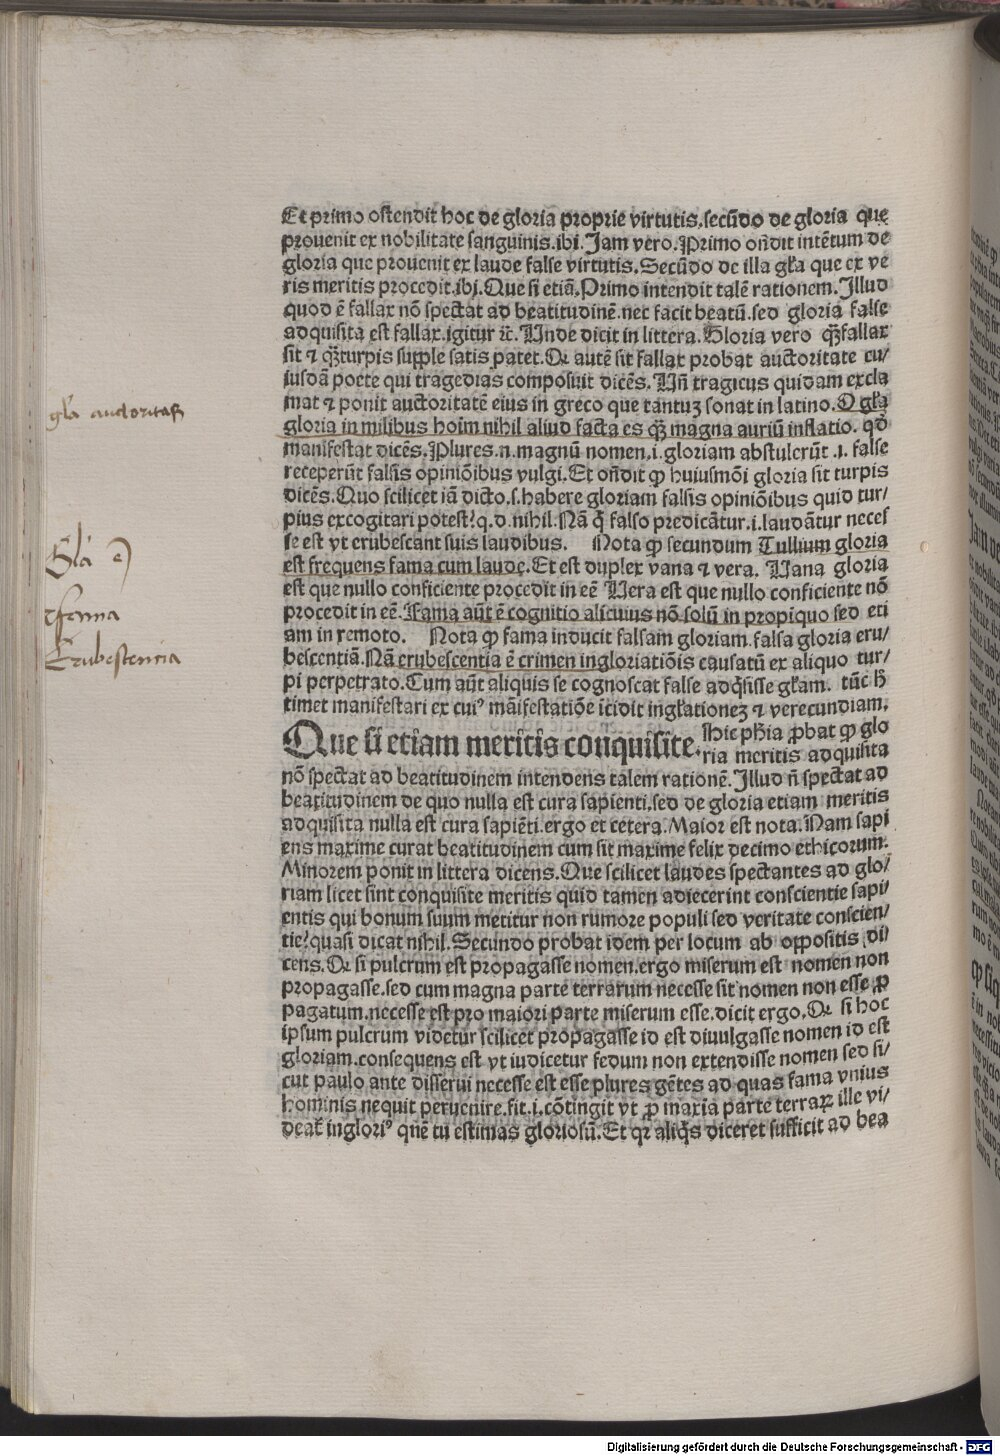 Et primo ostendit hoc de gloria proprie virtutis.secūdo de gloria que
prouenit ex nobilitate sanguinis.ibi.Jam vero.Primo oñdit intētum de
gloria que prouenit ex laude false virtutis.Secūdo de illa gła que ex ve
ris meritis procedit.ibi.Que si etiā.Primo intendit talē rationem.Illud
quod ē fallax nō spectat ad beatitudinē.nec facit beatū.sed gloria false
adquisita est fallax.igitur ⁊c̃.Unde dicit in littera.Gloria vero qȝ̄fallax
sit ⁊ qȝ̄turpis supple satis patet.Qꝛ autē sit fallax probat auctoritate cu/
iusdā poete qui tragedias composuit dicēs.Uñ tragicus quidam excla
mat ⁊ ponit auctoritatē eius in greco que tantuȝ sonat in latino.O gła
gloria in milibus hoīm nihil aliud facta es qȝ̄ magna auriū inflatio. qđ
manifestat dicēs.Plures.n.magnū nomen.i.gloriam abstulerūt .i. false
receperūt falsis opiniōibus vulgi.Et oñdit ꝙ huiusmōi gloria sit turpis
dicēs.Quo scilicet iā dicto.s.habere gloriam falsis opiniōibus quid tur/
pius excogitari potest?q.d.nihil.Nā q̄ falso predicātur.i.laudātur neces
se est vt erubescant suis laudibus. Nota ꝙ secundum Tullium gloria
est frequens fama cum laude.Et est duplex vana ⁊ vera. Uana gloria
est que nullo conficiente procedit in eē Uera est que nullo conficiente nō
procedit in eē.Fama aūt ē cognitio alicuius nō solū in propiquo sed eti
am in remoto. Nota ꝙ fama inducit falsam gloriam.falsa gloria eru/
bescentiā.Nā erubescentia ē crimen ingloriatiōis causatū ex aliquo tur/
pi perpetrato.Cum aūt aliquis se cognoscat false adq̄sisse głam. tūc ħ
timet manifestari ex cuiꝰ māifestatiōe īcidit ingłationeȝ ⁊ verecundiam.
Que si etiam meritis conquisite. Hic pħia ꝓbat ꝙ glo
ria meritis adquisita
nō spectat ad beatitudinem intendens talem rationē.Illud ñ spectat ad
beatitudinem de quo nulla est cura sapienti.sed de gloria etiam meritis
adquisita nulla est cura sapiēti.ergo et cetera.Maior est nota.Nam sapi
ens maxime curat beatitudinem cum sit maxime felix decimo ethicorum.
Minorem ponit in littera dicens.Que scilicet laudes spectantes ad glo/
riam licet sint conquisite meritis quid tamen adiecerint conscientie sapi/
entis qui bonum suum metitur non rumore populi sed veritate conscien/
tie?quasi dicat nihil.Secundo probat idem per locum ab oppositis di/
cens.Qꝛ si pulcrum est propagasse nomen.ergo miserum est nomen non
propagasse.sed cum magna parte terrarum necesse sit nomen non esse ꝓ
pagatum.necesse est pro maiori parte miserum esse.dicit ergo.Qꝛ si hoc
ipsum pulcrum videtur scilicet propagasse id est diuulgasse nomen id est
gloriam.consequens est vt iudicetur fedum non extendisse nomen sed si/
cut paulo ante disserui necesse est esse plures gētes ad quas fama vnius
hominis nequit peruenire.fit.i.cōtingit vt ꝓ maxīa parte terraꝝ ille vi/
deat̃ inglori⁹ quē tu estimas gloriosū.Et qꝛ aliq̄s diceret sufficit ad bea
gła auctoritas
Gła ē
fama
Erubescencia
Digitalisierung gefördert durch die Deutsche Forschungsgemeinschaft - DFG